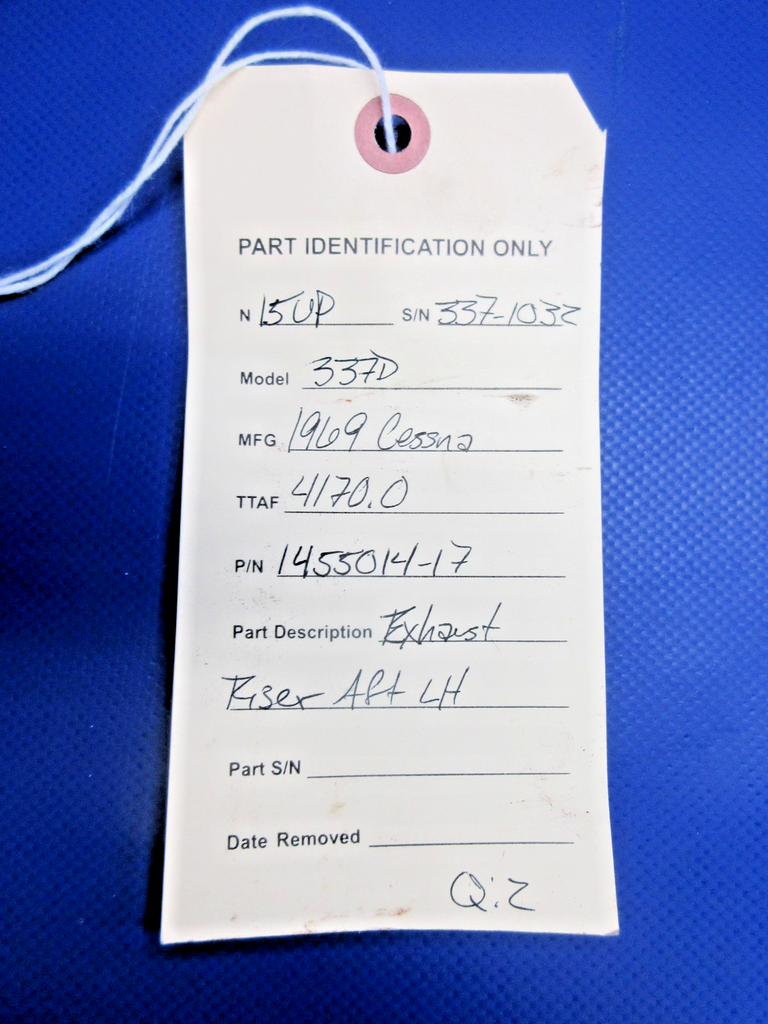 PART IDENTIFICATION ONLY
N 15UP S/N 337-1032
Model 337D
MFG 1969 Cessna
TTAF 4170.0
P/N 1455014-17
Part Description Exhaust
Riser Aft LH
Part S/N
Date Removed
Q:2